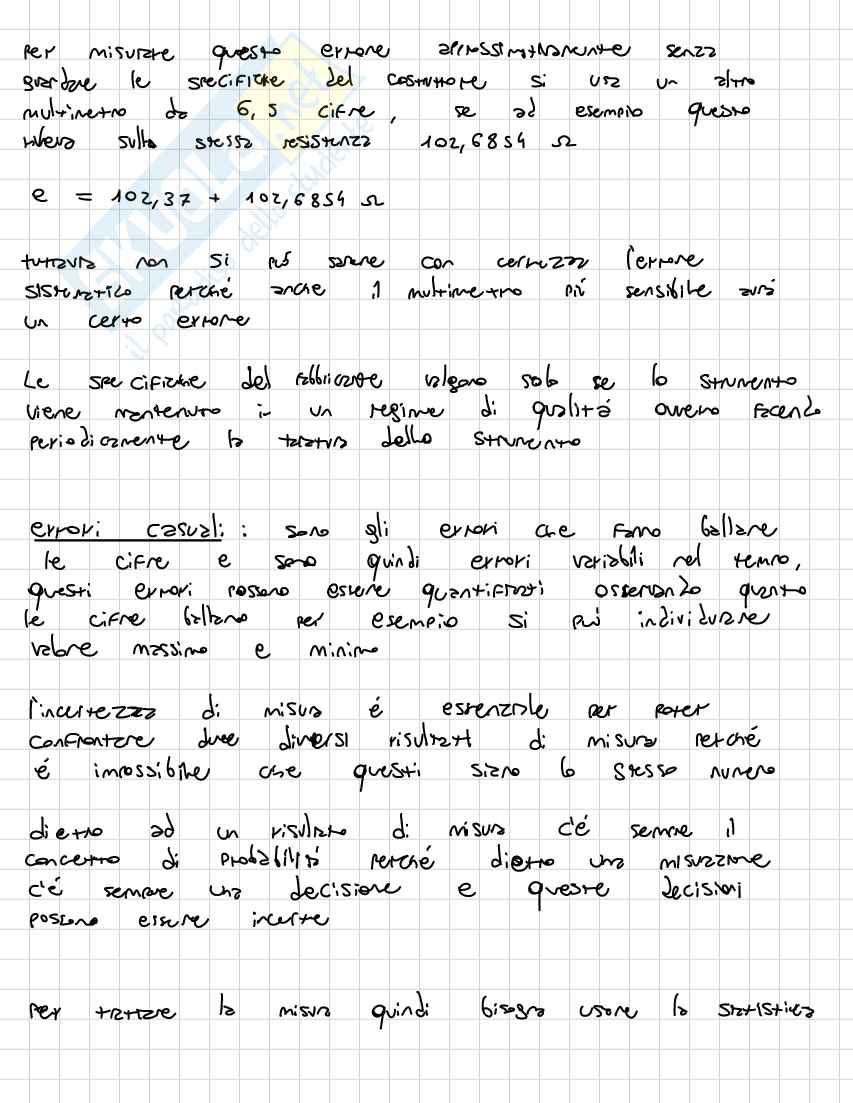 per misurare questo errore approssimativamente senza
guardare le specifiche del costruttore si usa un altro
multimetro da 6,5 cifre, se ad esempio questo
rileva sulla stessa resistenza 102,6854 Ω
e = 102,37 + 102,6854 Ω
tuttavia non si può sapere con certezza l'errore
sistematico perché anche il multimetro più sensibile avrà
un certo errore
Le specifiche del fabbricante valgono solo se lo strumento
viene mantenuto in un regime di qualitá ovvero facendo
periodicamente la taratura dello strumento
errori casuali: : sono gli errori che fanno ballare
le cifre e sono quindi errori variabili nel tempo,
questi errori possono essere quantificati osservando quanto
le cifre ballano per esempio si può individuare
valore massimo e minimo
l'incertezza di misura é essenziale per poter
confrontare due diversi risultati di misura perché
é impossibile che questi siano lo stesso numero
dietro ad un risultato di misura c'é sempre il
concetto di probabilitá perché dietro una misurazione
c'é sempre una decisione e queste decisioni
possono essere incerte
per trattare la misura quindi bisogna usare la statistica
SKUOLA.net
il portale dello studente